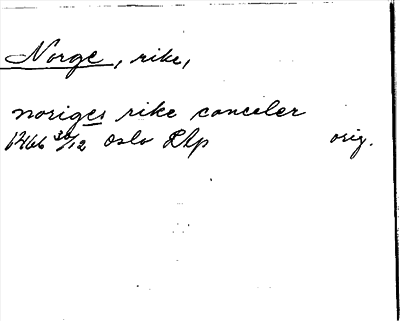 Norge, rike,
noriges rike canceler
1466 30/12 Oslo RAp orig.